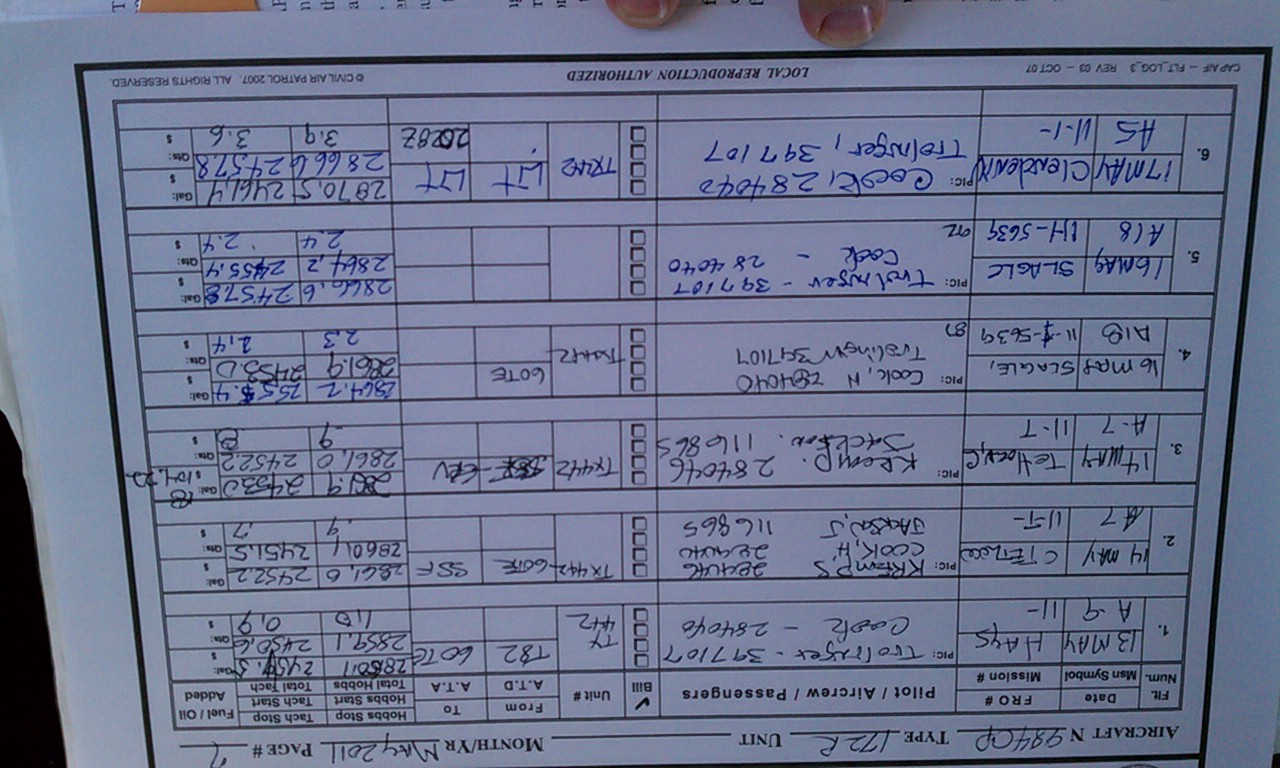 AIRCRAFT N 984CP TYPE 172R UNIT MONTH/YR May 2011 PAGE # 7
Flt. Num. Date FRO # Pilot / Aircrew / Passengers Bill Unit # From To Hobbs Stop Tach Stop Fuel / Oil Added
Msn Symbol Mission # A.T.D A.T.A Hobbs Start Tach Start
Total Hobbs Total Tach
1. 13 MAY HAYS PIC: Trolinger - 397107 TX 442 T82 60TE Gal:
A-9 11- Cook - 284040 2859.1 2450.6 Qts:
1.0 0.9 $
2. 14 MAY PIC: KREMP, S 284046 TX442 60TE SSF 2861.0 2452.2 Gal:
A7 11-T- COOK, H 284040 2860.1 2451.5 Qts:
JACKSON, J 116865 .9 .7 $
3. 14 MAY PIC: Kremp. 284046 TX442 2861.9 2453.0 Gal:
A-7 11-T Jackson. 116865 2861.0 2452.2 Qts: $104.22
.9 .8 $
4. 16 MAY SLAGLE, PIC: Cook, H 284040 TX442 60TE 2864.2 Gal:
A18 11-T-5639 Trolinger 397107 2861.9 2453.0 Qts:
87 2.3 2.4 $
5. 16 MAY SLAGLE PIC: Trolinger - 397107 2866.6 2457.8 Gal:
A18 11-T-5639 Cook - 284040 2864.2 2455.4 Qts:
92 2.4 2.4 $
6. 17 MAY Clendenin PIC: Cook, 284040 TX442 LJT LJT 2870.5 2461.4 Gal:
A5 11-1- Trolinger, 397107 2028Z 2866.6 2457.8 Qts:
3.9 3.6 $
CAP AIF – FLT_LOG_3 REV 03 – OCT 07 LOCAL REPRODUCTION AUTHORIZED © CIVIL AIR PATROL 2007. ALL RIGHTS RESERVED.